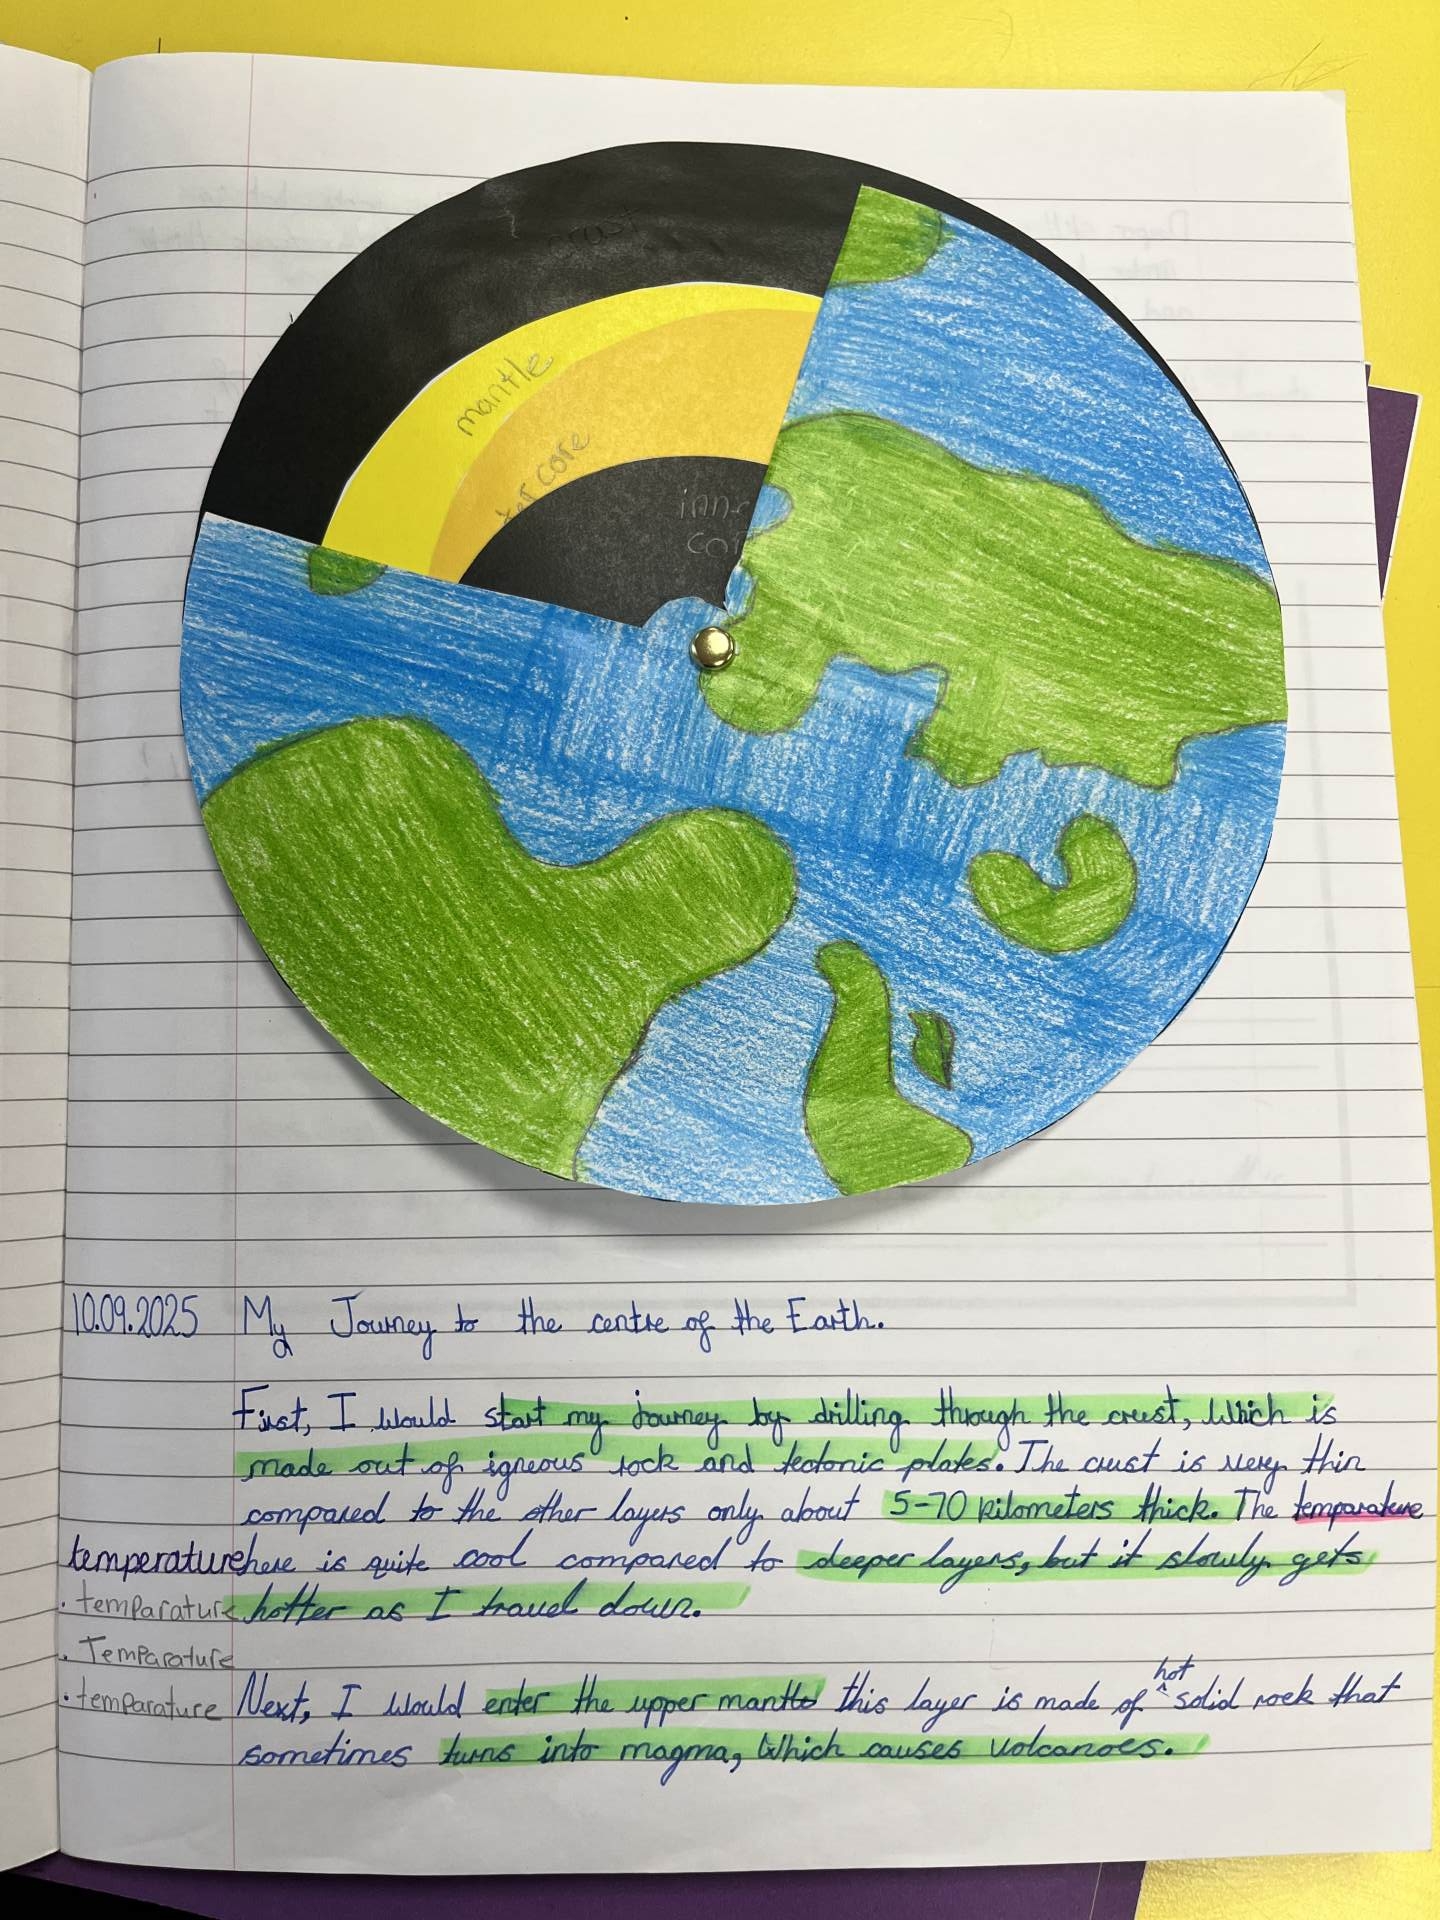 crust
mantle
ter core
inn
cor
10.09.2025 My Journey to the centre of the Earth.
First, I would start my journey by drilling through the crust, which is
made out of igneous rock and tectonic plates. The crust is very thin
compared to the other layers only about 5-70 kilometers thick. The temparature
temperature here is quite cool compared to deeper layers, but it slowly gets
. temparature hotter as I travel down.
. Temparature
hot
. temparature Next, I would enter the upper mantle this layer is made of ^ solid rock that
sometimes turns into magma, which causes volcanoes.